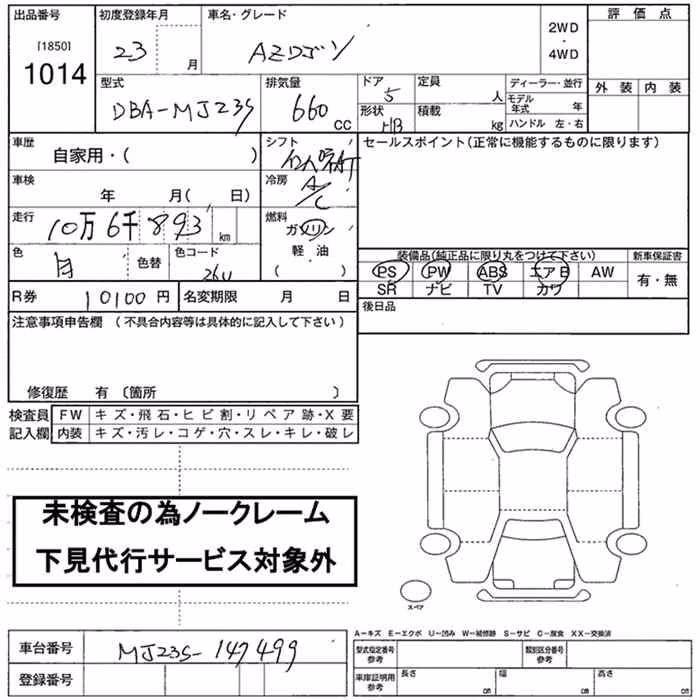 出品番号 初度登録年月 車名・グレード 評価点
[1850] 23 月 AZワゴン 2WD・4WD
1014 外装 内装
型式 排気量 ドア 定員 ディーラー・並行
DBA-MJ23S 660 CC 5 人 モデル年式 年
形状 積載 ハンドル 左・右
HB kg
車歴 シフト セールスポイント(正常に機能するものに限ります)
自家用・( )
車検 冷房
年 月( 日) A/C
走行 燃料
10万6千893 km ガソリン
色 色替 色コード 軽・油 装備品(純正品に限り丸をつけて下さい) 新車保証書
白 26U ( ) PS PW ABS エアB AW 有・無
SR ナビ TV カワ
R券 10100円 名変期限 月 日 後日品
注意事項申告欄 (不具合内容等は具体的に記入して下さい)
修復歴 有 〔箇所 〕
検査員 FW キズ・飛石・ヒビ割・リペア跡・X要
記入欄 内装 キズ・汚レ・コゲ・穴・スレ・キレ・破レ
未検査の為ノークレーム
下見代行サービス対象外
スペア
A−キズ E−エクボ U−凹み W−補修跡 S−サビ C−腐食 XX−交換済
車台番号 MJ23S-147499 型式指定番号 参考 類別区分番号 参考
登録番号 車庫証明用 参考 長さ cm 幅 cm 高さ cm